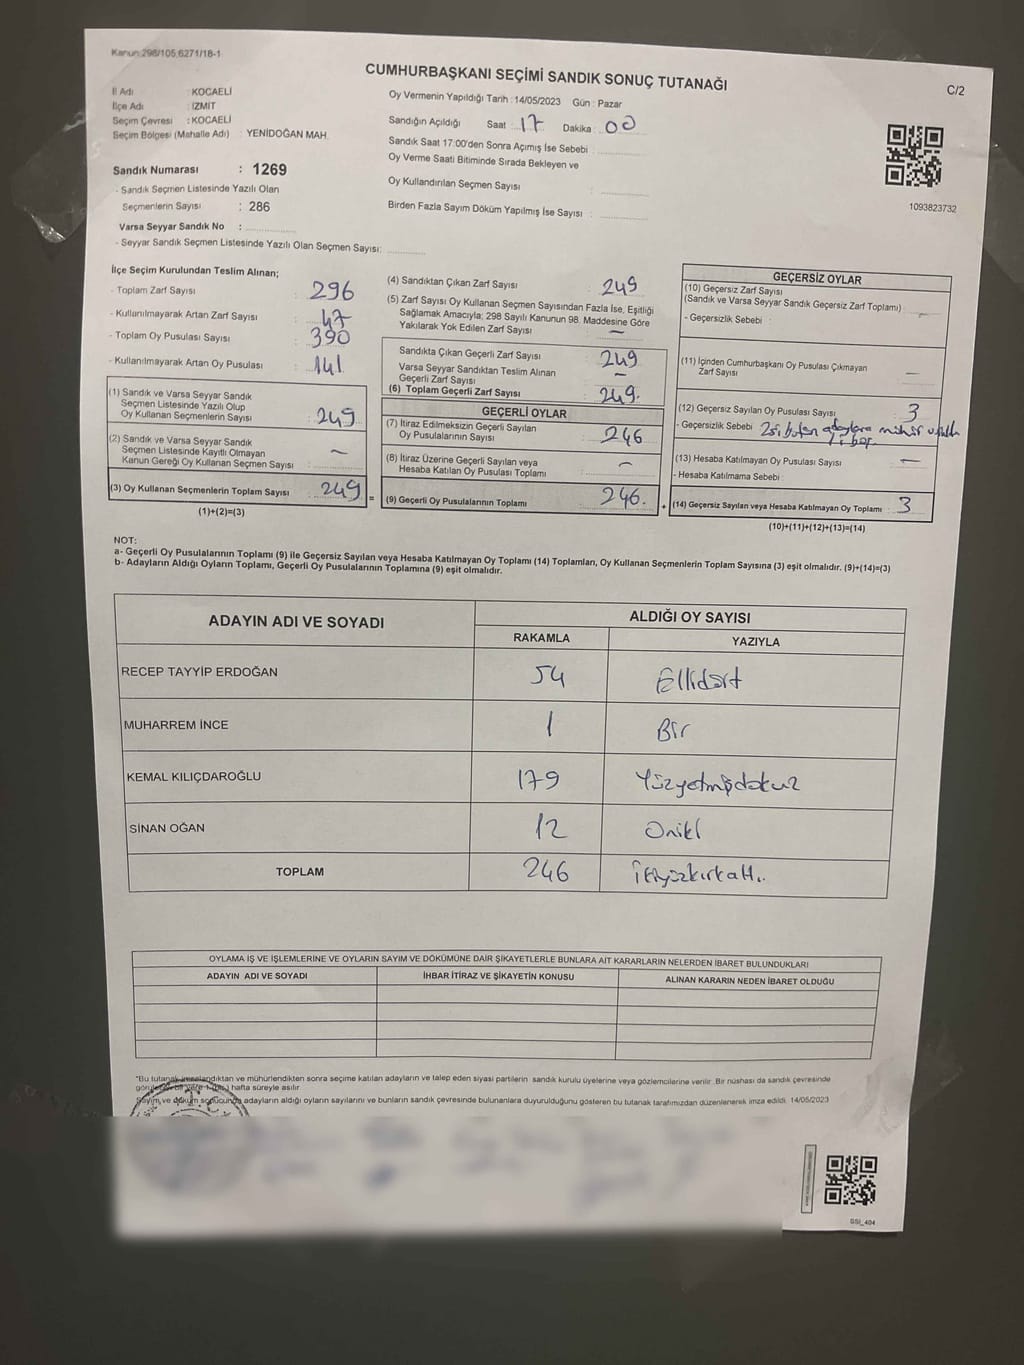 Kanun:298/105,6271/18-1
CUMHURBAŞKANI SEÇİMİ SANDIK SONUÇ TUTANAĞI
C/2
İl Adı : KOCAELİ
İlçe Adı : İZMİT
Seçim Çevresi : KOCAELİ
Seçim Bölgesi (Mahalle Adı) : YENİDOĞAN MAH.
Sandık Numarası : 1269
- Sandık Seçmen Listesinde Yazılı Olan
Seçmenlerin Sayısı : 286
Varsa Seyyar Sandık No :
- Seyyar Sandık Seçmen Listesinde Yazılı Olan Seçmen Sayısı:
Oy Vermenin Yapıldığı Tarih : 14/05/2023 Gün : Pazar
Sandığın Açıldığı Saat : 17 Dakika : 00
Sandık Saat 17:00'den Sonra Açımış İse Sebebi :
Oy Verme Saati Bitiminde Sırada Bekleyen ve
Oy Kullandırılan Seçmen Sayısı :
Birden Fazla Sayım Döküm Yapılmış İse Sayısı :
1093823732
İlçe Seçim Kurulundan Teslim Alınan;
- Toplam Zarf Sayısı : 296
- Kullanılmayarak Artan Zarf Sayısı : 47
- Toplam Oy Pusulası Sayısı : 390
- Kullanılmayarak Artan Oy Pusulası : 141
(1) Sandık ve Varsa Seyyar Sandık
Seçmen Listesinde Yazılı Olup
Oy Kullanan Seçmenlerin Sayısı : 249
(2) Sandık ve Varsa Seyyar Sandık
Seçmen Listesinde Kayıtlı Olmayan
Kanun Gereği Oy Kullanan Seçmen Sayısı : –
(3) Oy Kullanan Seçmenlerin Toplam Sayısı : 249
(1)+(2)=(3)
=
(4) Sandıktan Çıkan Zarf Sayısı : 249
(5) Zarf Sayısı Oy Kullanan Seçmen Sayısından Fazla İse, Eşitliği
Sağlamak Amacıyla; 298 Sayılı Kanunun 98. Maddesine Göre
Yakılarak Yok Edilen Zarf Sayısı : –
Sandıkta Çıkan Geçerli Zarf Sayısı : 249
Varsa Seyyar Sandıktan Teslim Alınan
Geçerli Zarf Sayısı : –
(6) Toplam Geçerli Zarf Sayısı : 249.
GEÇERLİ OYLAR
(7) İtiraz Edilmeksizin Geçerli Sayılan
Oy Pusulalarının Sayısı : 246
(8) İtiraz Üzerine Geçerli Sayılan veya
Hesaba Katılan Oy Pusulası Toplamı : –
(9) Geçerli Oy Pusulalarının Toplamı : 246.
+
GEÇERSİZ OYLAR
(10) Geçersiz Zarf Sayısı
(Sandık ve Varsa Seyyar Sandık Geçersiz Zarf Toplamı) : –
- Geçersizlik Sebebi :
(11) İçinden Cumhurbaşkanı Oy Pusulası Çıkmayan
Zarf Sayısı : –
(12) Geçersiz Sayılan Oy Pusulası Sayısı : 3
- Geçersizlik Sebebi : 2si bütün adaylara mühür
1 i boş.
(13) Hesaba Katılmayan Oy Pusulası Sayısı : –
- Hesaba Katılmama Sebebi :
(14) Geçersiz Sayılan veya Hesaba Katılmayan Oy Toplamı : 3
(10)+(11)+(12)+(13)=(14)
NOT:
a- Geçerli Oy Pusulalarının Toplamı (9) ile Geçersiz Sayılan veya Hesaba Katılmayan Oy Toplamı (14) Toplamları, Oy Kullanan Seçmenlerin Toplam Sayısına (3) eşit olmalıdır. (9)+(14)=(3)
b- Adayların Aldığı Oyların Toplamı, Geçerli Oy Pusulalarının Toplamına (9) eşit olmalıdır.
ADAYIN ADI VE SOYADI
ALDIĞI OY SAYISI
RAKAMLA
YAZIYLA
RECEP TAYYİP ERDOĞAN 54 Ellidört
MUHARREM İNCE 1 Bir
KEMAL KILIÇDAROĞLU 179 Yüzyetmişdokuz
SİNAN OĞAN 12 Oniki
TOPLAM 246 İkiyüzkırkaltı.
OYLAMA İŞ VE İŞLEMLERİNE VE OYLARIN SAYIM VE DÖKÜMÜNE DAİR ŞİKAYETLERLE BUNLARA AİT KARARLARIN NELERDEN İBARET BULUNDUKLARI
ADAYIN ADI VE SOYADI
İHBAR İTİRAZ VE ŞİKAYETİN KONUSU
ALINAN KARARIN NEDEN İBARET OLDUĞU
*Bu tutanak imzalandıktan ve mühürlendikten sonra seçime katılan adayların ve talep eden siyasi partilerin sandık kurulu üyelerine veya gözlemcilerine verilir. Bir nüshası da sandık çevresinde
görülebilen bir yere 1 (bir) hafta süreyle asılır.
Sayım ve döküm sonucunda adayların aldığı oyların sayılarını ve bunların sandık çevresinde bulunanlara duyurulduğunu gösteren bu tutanak tarafımızdan düzenlenerek imza edildi. 14/05/2023
T.C.
GSİ_404